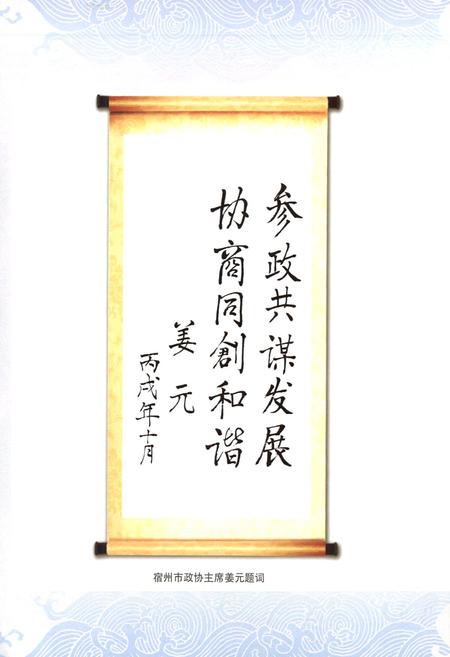 参政共谋发展
协商同創和谐
姜元
丙戌年十月
宿州市政协主席姜元题词